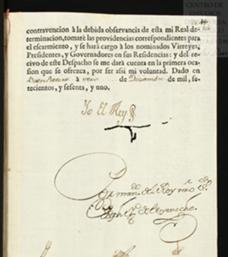 contravencion à la debida observancia de esta mi Real de-
terminacion, tomaré las providencias correspondientes para
el escarmiento, y se hará cargo à los nominados Virreyes,
Presidentes, y Governadores en sus Residencias: y del re-
civo de este Despacho se me dará cuenta en la primera oca-
sion que se ofrezca, por ser assi mi voluntad. Dado en
Buen Retiro à de Diciembre de mil, se-
tecientos, y sesenta, y uno.
Yo El Rey
Por man.do del Rey nro S.or